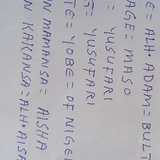 E = ALH ADAM = BULT
AGE = MASO
= YUSUFARI
= YUSUFARI
TE = YOBE = OF NIGE
N MAMANSA = AISHA
N KAKANSA = ALH AISA